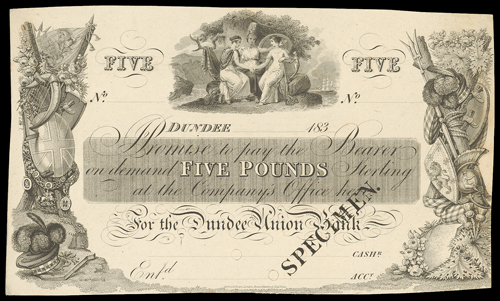 FIVE FIVE
No. No.
DUNDEE 183
Promise to pay the Bearer
on demand FIVE POUNDS Sterling
at the Company's Office here
For the Dundee Union Bank
SPECIMEN.
CASHR.
Entd ACCT.